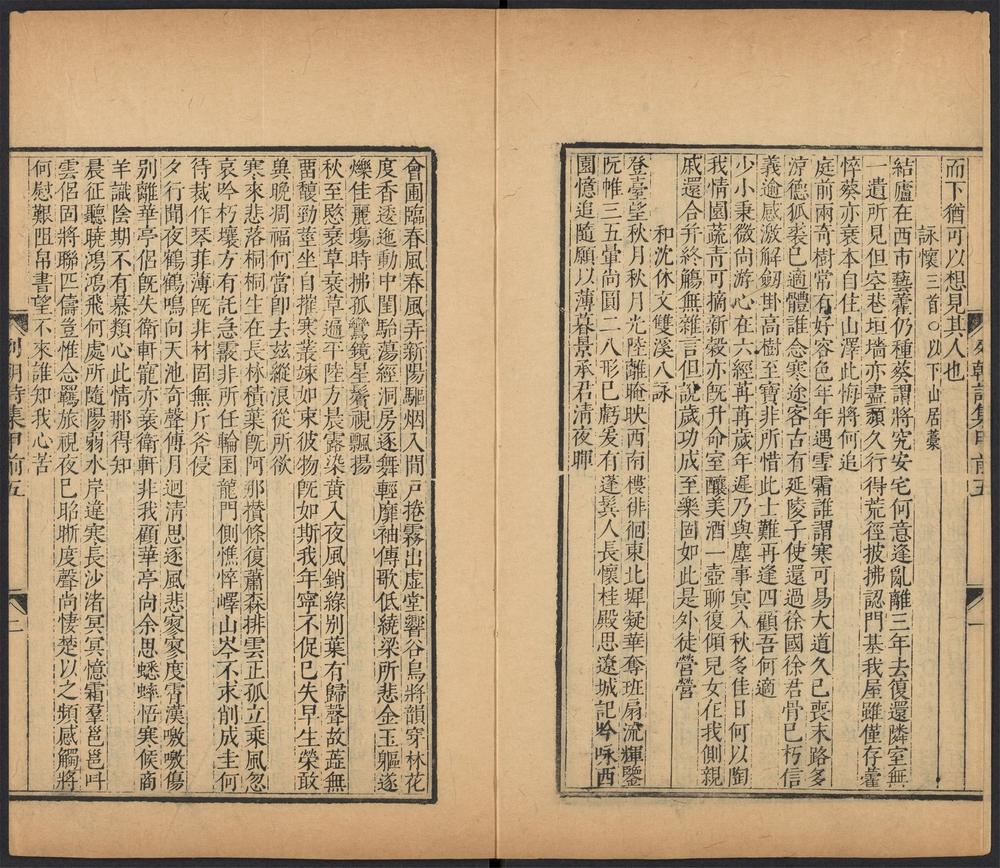 而下猶可以想見其人也
詠懷三首○以下山居藁
結廬在西市藝藿仍種葵謂將究安宅何意逢亂離三年去復還隣室無
一遺所見但空巷垣墻亦盡頹久行得荒徑披拂認門基我屋雖僅存藿
悴葵亦衰本自住山澤此悔將何追
庭前兩奇樹常有好容色年年遇雪霜誰謂寒可易大道久已喪末路多
涼德狐裘已適體誰念寒途客古有延陵子使還過徐國徐君骨已朽信
義逾感激解劒掛高樹至寶非所惜此士難再逢四顧吾何適
少小秉微尚游心在六經苒苒歲年遲乃與塵事冥入秋多佳日何以陶
我情園蔬靑可摘新穀亦旣升命室釀美酒一壺聊復傾兒女在我側親
戚還合幷終觴無雜言但說歲功成至樂固如此是外徒營營
和沈休文雙溪八詠
登臺望秋月秋月光陸離晻映西南樓徘徊東北墀凝華奪班扇流輝鑒
阮帷三五暈尚圓二八形已虧爰有蓬鬂人長懷桂殿思遼城記吟咏西
園憶追隨願以薄暮景承君清夜暉
會圃臨春風春風弄新陽驅烟入閒戸捲霧出虛堂響谷鳥將韻穿林花
度香逶迤動中閨駘蕩經洞房逐舞輕靡袖傳歌低繞梁所悲金玉軀遂
爍佳麗塲時拂孤鸞鏡星鬢視飄揚
秋至愍衰草衰草遍平陸方晨露染黃入夜風銷綠别葉有歸聲故葢無
畱馥勁莖坐自摧寒叢竦如束彼物旣如斯我年寧不促已失早生榮敢
與晚凋福何當卽去茲縱浪從所欲
寒來悲落桐桐生在長林積葉旣阿那攅條復蕭森排雲正孤立乘風忽
哀吟朽壤方有託急霰非所任輪囷龍門側憔悴嶧山岑不求削成圭何
待裁作琴菲薄旣非材固無斤斧侵
夕行聞夜鶴鶴鳴向天池奇聲傳月迥清思逐風悲寥寥度霄漢嗷嗷傷
别離華亭侶旣失衛軒寵亦衰衛軒非我顧華亭尚余思蟋蟀悟寒候商
羊識陰期不有慕類心此情那得知
晨征聽曉鴻鴻飛何處所隨陽弱水岸違寒長沙渚冥冥憶霜羣邕邕呌
雲侶固將聯匹儔豈惟念羇旅視夜已昭晰度聲尚悽楚以之頻感觸將
何慰艱阻帛書望不來誰知我心苦
列朝詩集甲前五
二